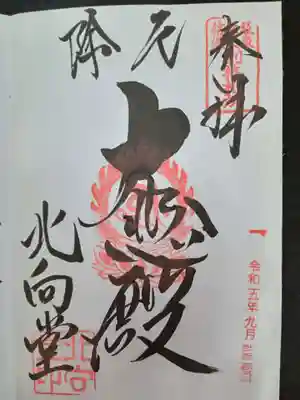 奉拝
厄除
大悲殿
北向堂
令和五年九月